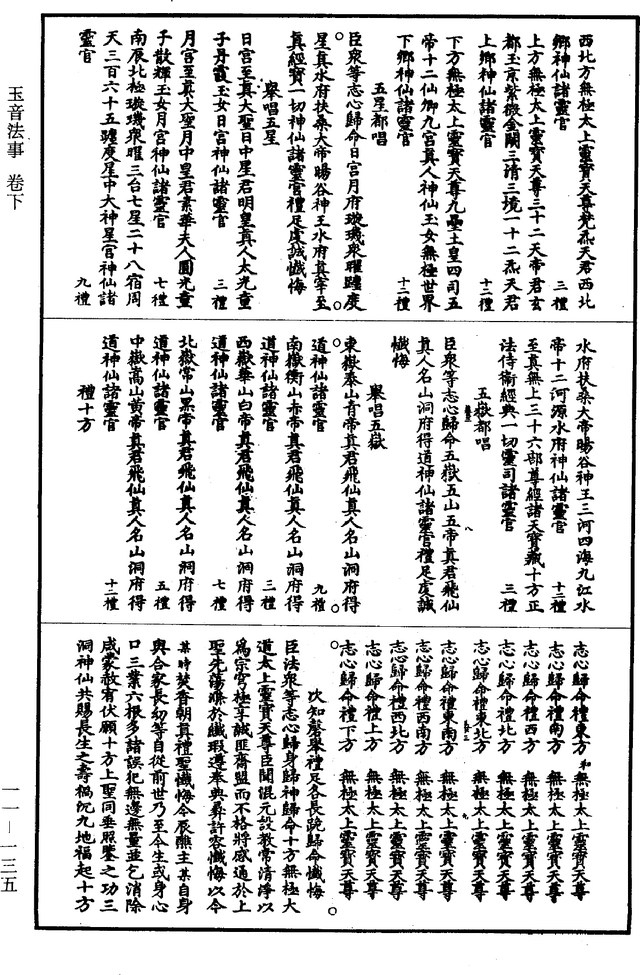 玉音法事 卷下
西北方無極太上靈寶天尊梵炁天君西北
鄉神仙諸靈官 三禮
上方無極太上靈寶天尊三十二天帝君玄
都玉京紫微金闕三清三境一十二炁天君
上鄉神仙諸靈官 十二禮
下方無極太上靈寶天尊九壘土皇四司五
帝十二仙卿九宮真人神仙玉女無極世界
下鄉神仙諸靈官 十二禮
五星都唱
臣衆等志心歸命日宮月府璇璣衆曜躔度
星真水府扶桑大帝暘谷神王水府真宰至
真經寶一切神仙諸靈官禮足虔誠懺悔
舉唱五星
日宮至真大聖日中星君明皇真人太光童
子丹霞玉女日宮神仙諸靈官 三禮
月宮至真大聖月中皇君素華夫人圓光童
子散輝玉女月宮神仙諸靈官 七禮
南辰北極璇璣衆曜三台七星二十八宿周
天三百六十五躔度星中大神星官神仙諸
靈官 九禮
水府扶桑大帝暘谷神王三河四海九江水
帝十二河源水府神仙諸靈官 十二禮
至真無上三十六部尊經諸天寶藏十方正
法侍衛經典一切靈司諸靈官 三禮
五嶽都唱
臣衆等志心歸命五嶽五山五帝真君飛仙
真人名山洞府得道神仙諸靈官禮足虔誠
懺悔
舉唱五嶽
東嶽泰山青帝真君飛仙真人名山洞府得
道神仙諸靈官 九禮
南嶽衡山赤帝真君飛仙真人名山洞府得
道神仙諸靈官 三禮
西嶽華山白帝真君飛仙真人名山洞府得
道神仙諸靈官 七禮
北嶽常山黑帝真君飛仙真人名山洞府得
道神仙諸靈官 五禮
中嶽嵩山黃帝真君飛仙真人名山洞府得
道神仙諸靈官 十二禮
禮十方
志心歸命禮東方 和 無極太上靈寶天尊
志心歸命禮南方 無極太上靈寶天尊
志心歸命禮西方 無極太上靈寶天尊
志心歸命禮北方 無極太上靈寶天尊
志心歸命禮東北方 無極太上靈寶天尊
志心歸命禮東南方 無極太上靈寶天尊
志心歸命禮西南方 無極太上靈寶天尊
志心歸命禮西北方 無極太上靈寶天尊
志心歸命禮上方 無極太上靈寶天尊
志心歸命禮下方 無極太上靈寶天尊
次知磬舉禮足各長跪歸命懺悔
臣法衆等志心歸身歸神歸命十方無極大
道太上靈寶天尊臣聞混元設教常清淨以
爲宗穹極享誠匪齋盟而不格將感通於上
聖先蕩滌於纖瑕遵奉典彞許容懺悔以今
某時焚香朝真禮聖懺悔今辰醮主某自身
與合家長幼等自從前世乃至今生或身心
口三業六根多諸誤犯無邊無量並乞消除
咸蒙赦宥伏願十方上聖同垂照鑒之功三
洞神仙共賜長生之壽禍沉九地福起十方
一一—一三五